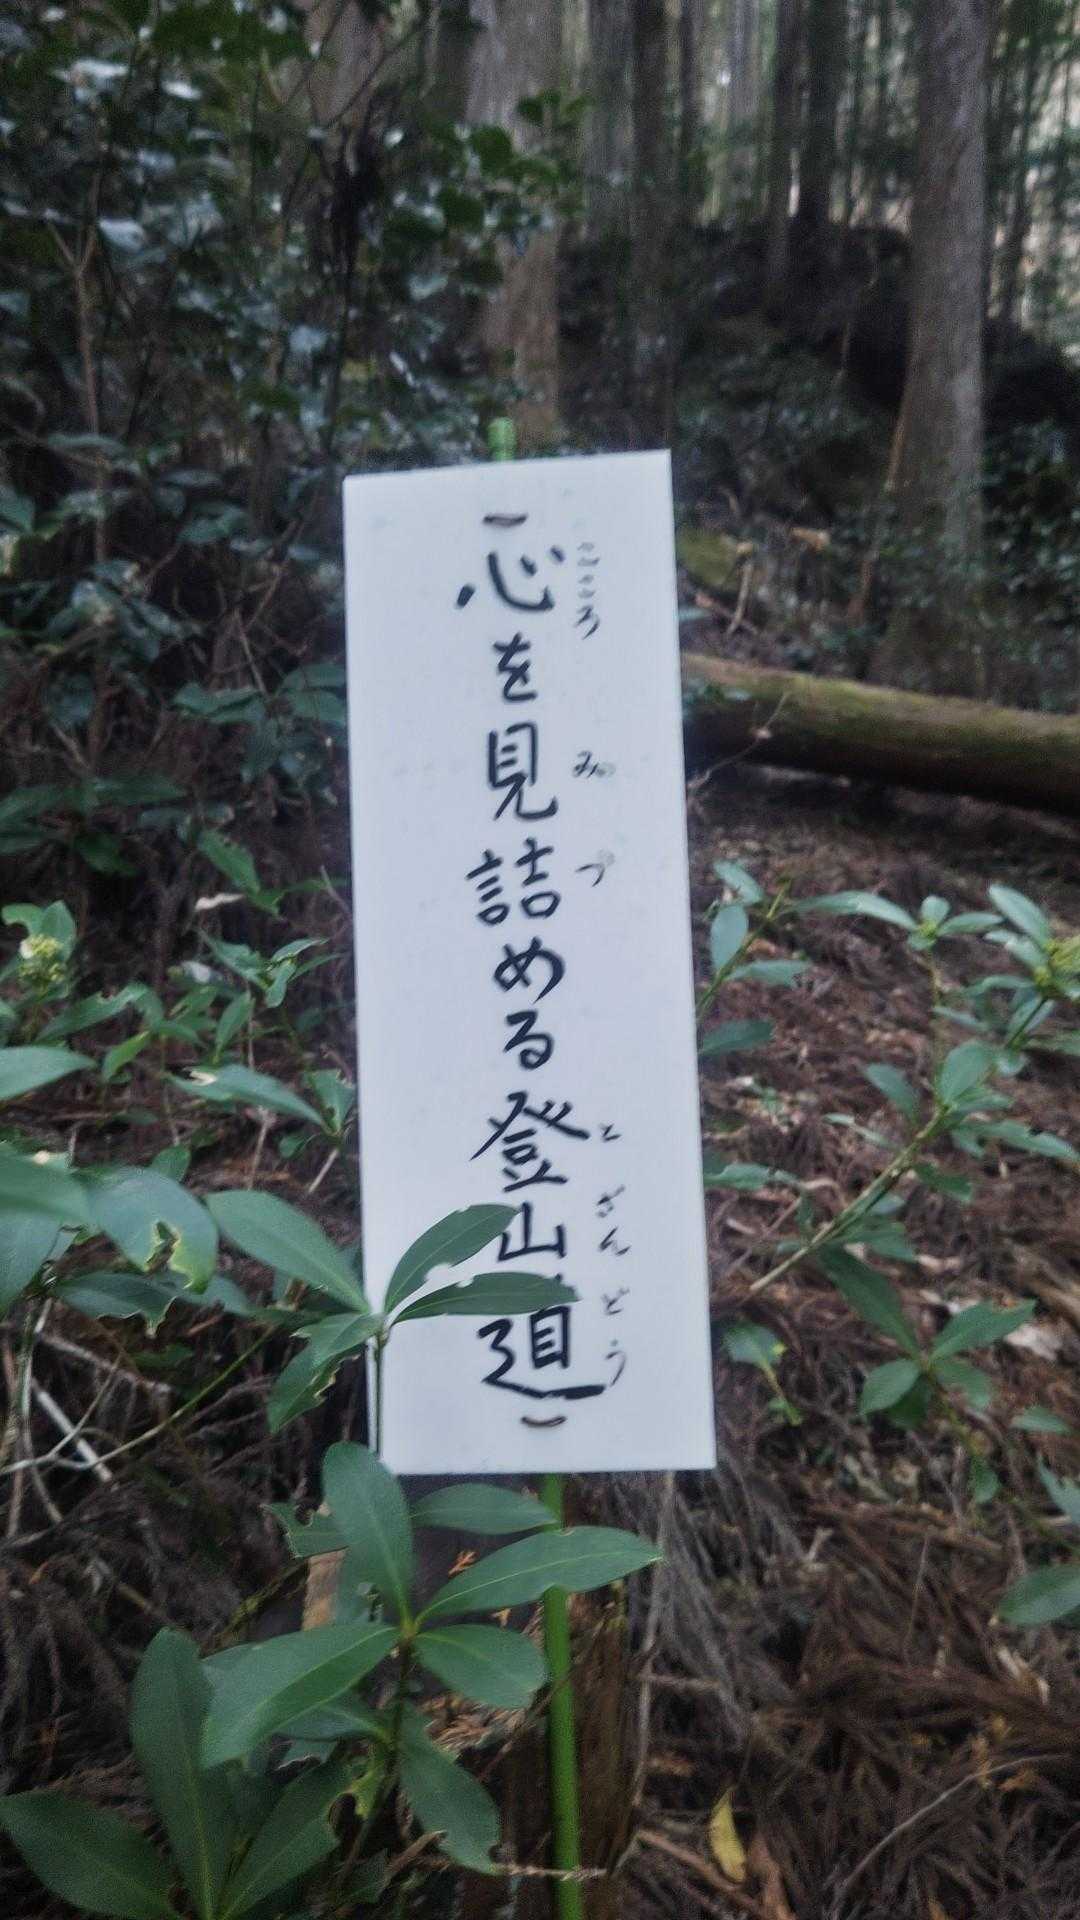 心を見詰める登山道
こころ み づ とざんどう